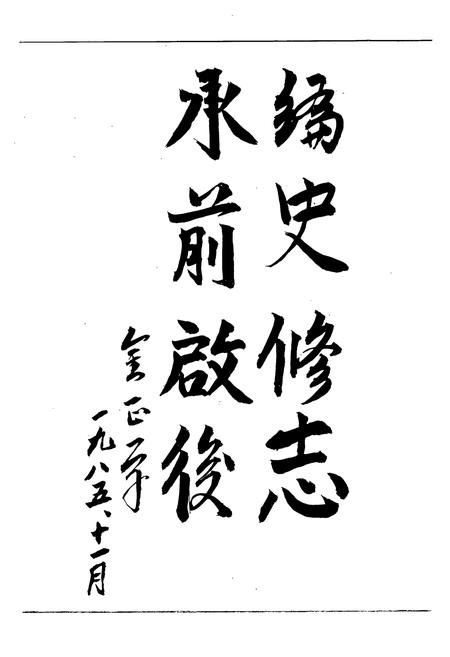 编史修志
承前啟後
金正一
一九八五、十一月